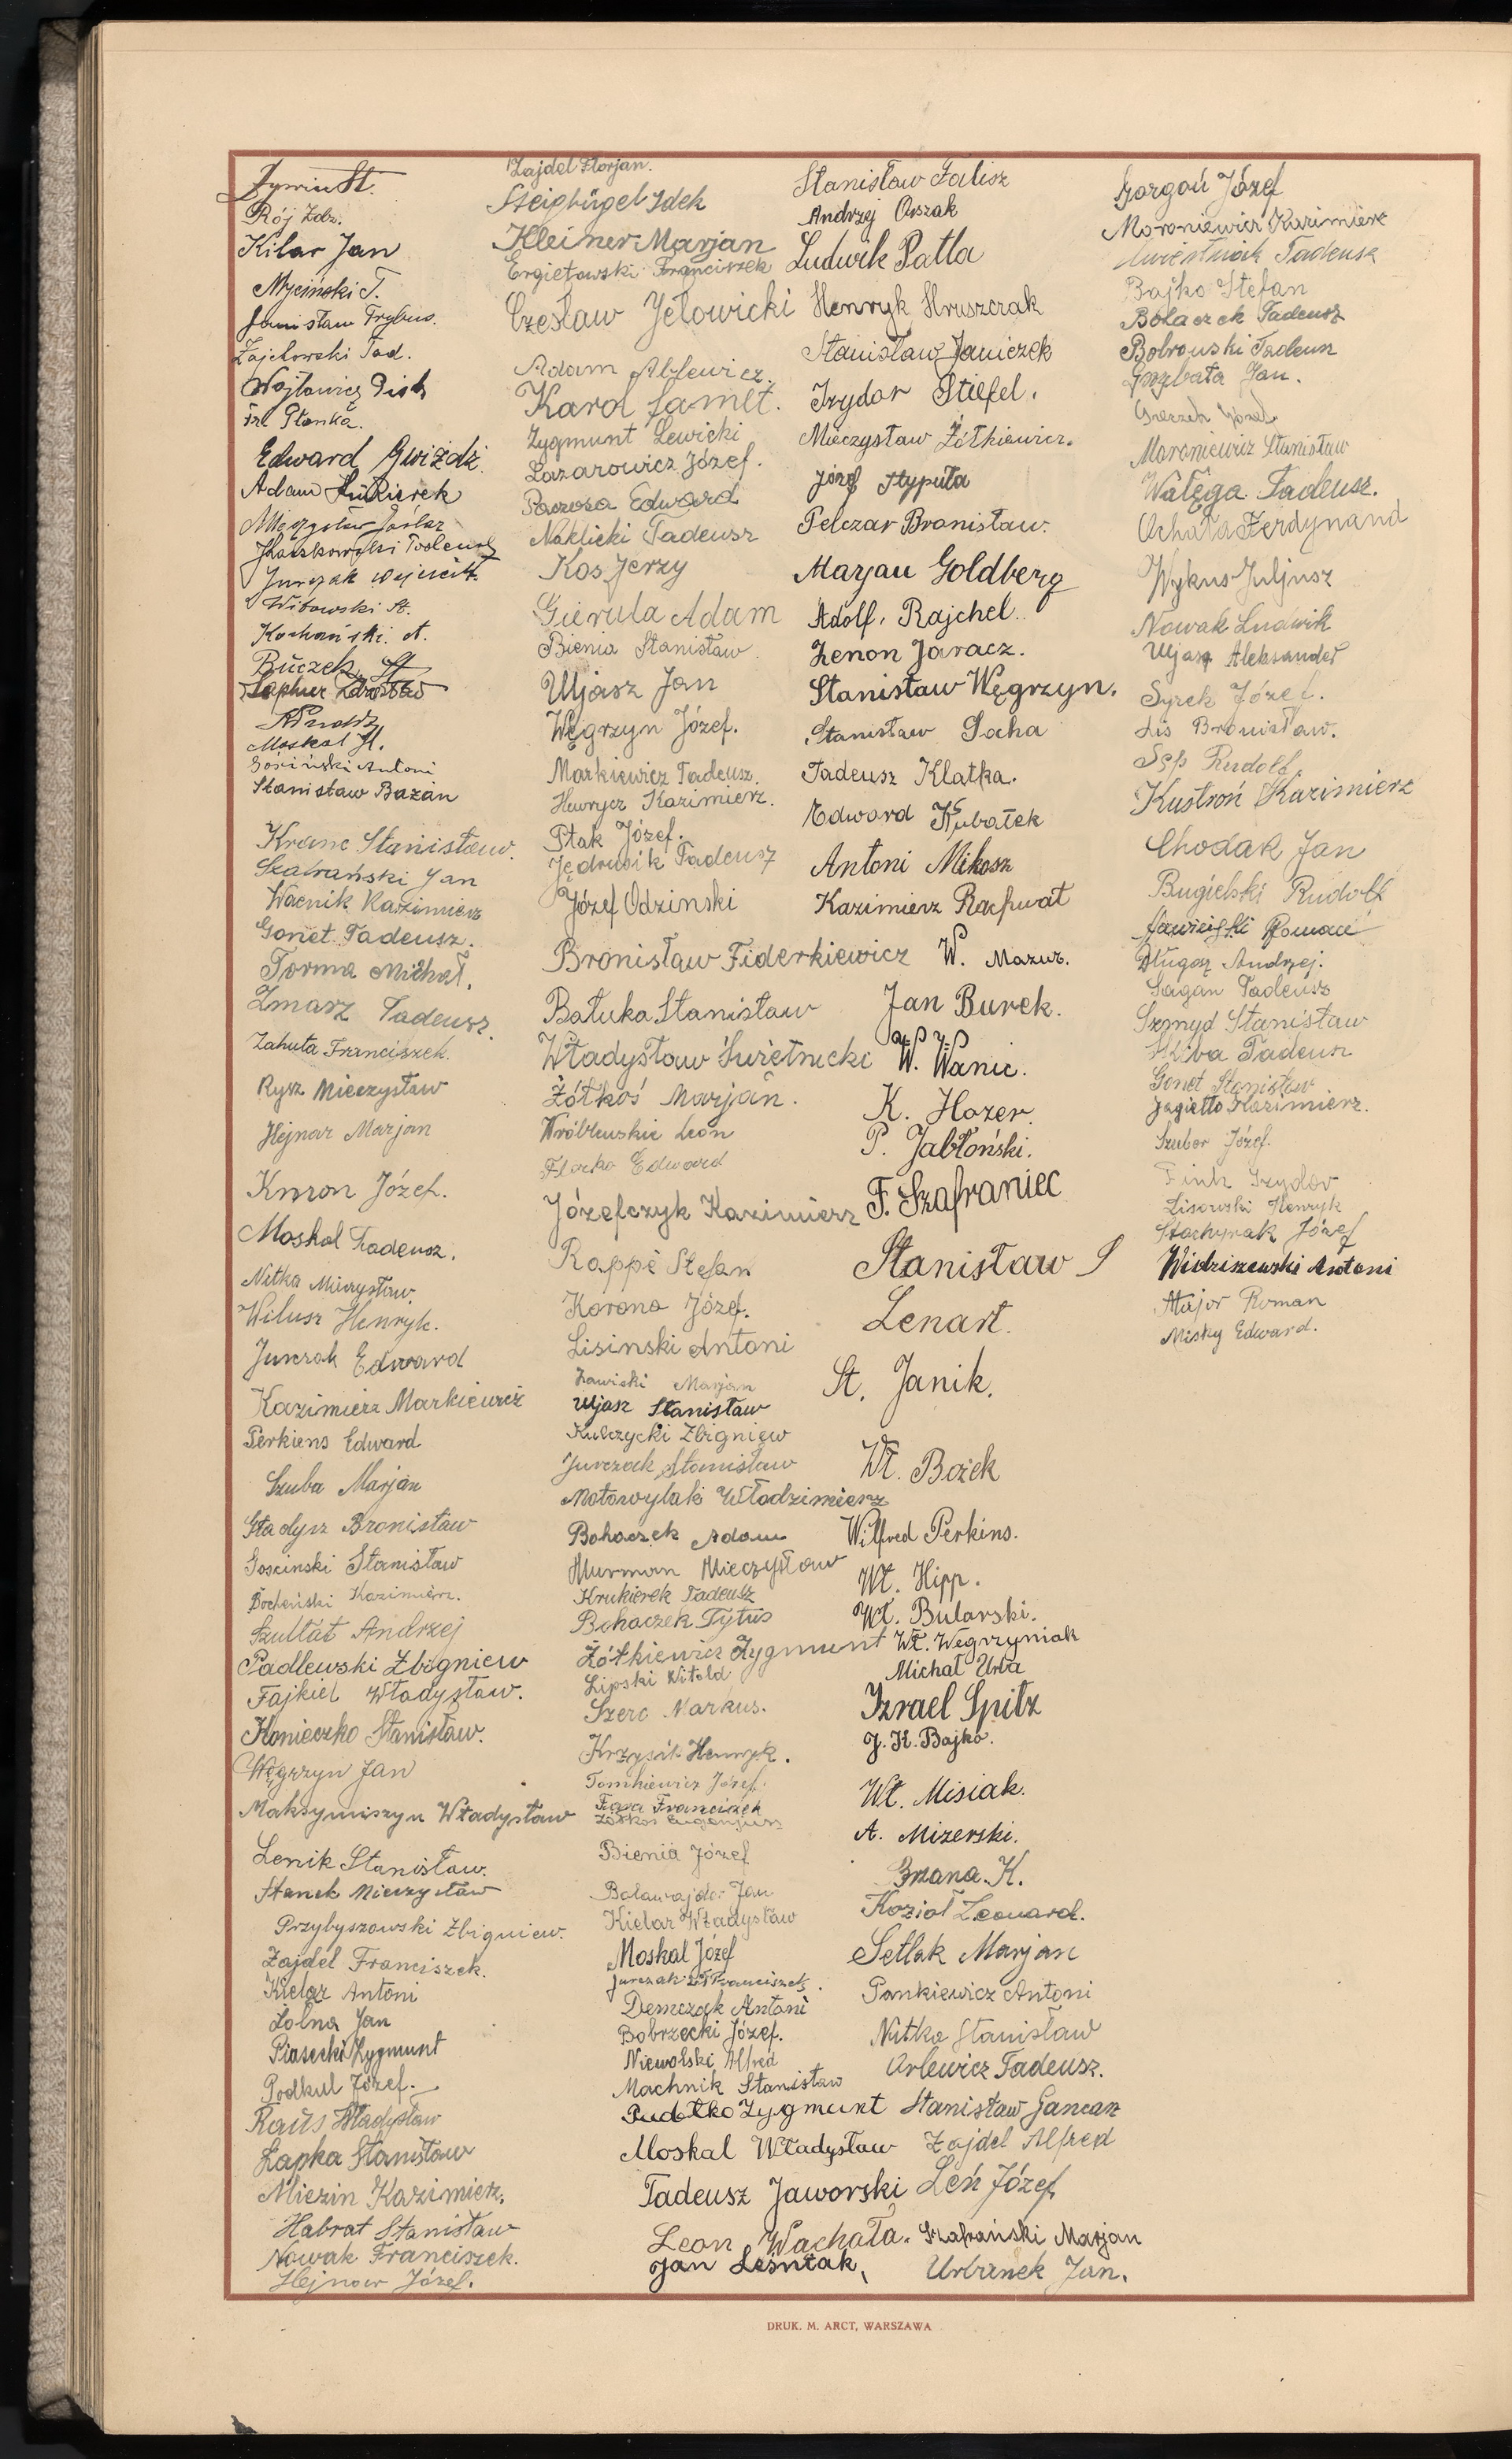 Żywiec St.
Rój Zdz.
Kilar Jan
Myciński T.
Stanisław Trybus.
Zajchowski Tad.
Wójtowicz
Edward Gwiżdż.
Adam Krukierek
Mieczysław Jaślar
Kaszkowski Tadeusz
Jurczak Wojciech
Witowski St.
Kochański. A.
Buczek St
Moskal H.
Gosiński Antoni
Stanisław Bazan
Kranc Stanisław.
Szafrański Jan
Wacnik Kazimierz
Gonet Tadeusz.
Torma Michał.
Zmarz Tadeusz.
Zahuta Franciszek.
Rysz Mieczysław
Hejnar Marjan
Knron Józef.
Moskal Tadeusz.
Nitka Mieczysław.
Wilusz Henryk.
Jurczak Edward
Kazimierz Markiewicz
Perkiens Edward
Szuba Marjan
Gładysz Bronisław
Goscinski Stanisław
Bocheński Kazimierz.
Szullat Andrzej
Padlewski Zbigniew
Fajkiel Władysław.
Konieczko Stanisław.
Węgrzyn Jan
Maksymiszyn Władysław
Lenik Stanisław.
Stanek Mieczysław
Przybyszowski Zbigniew.
Zajdel Franciszek.
Kielar Antoni
Żolna Jan
Piasecki Zygmunt
Podkul Józef.
Raus Władysław
Łapka Stanisław
Miezin Kazimierz.
Habrat Stanisław
Nowak Franciszek.
Hejnar Józef.
Zajdel Florjan.
Steigbügel Idek
Kleiner Marjan
Ergietowski Franciszek
Czesław Jełowicki
Adam Ablewicz.
Karol Samet.
Zygmunt Lewicki
Lazarowicz Józef.
Paczosa Edward
Naklicki Tadeusz
Kos Jerzy
Gierula Adam
Bienia Stanisław.
Ujjasz Jan
Węgrzyn Józef.
Markiewicz Tadeusz.
Hawrycz Kazimierz.
Ptak Józef.
Jędrusik Tadeusz
Józef Odzinski
Bronisław Fiderkiewicz
Batuka Stanisław
Władysław Świetnicki
Żółkoś Marjan.
Wróblewskie Leon
Florko Edward
Józefczyk Kazimierz
Rappé Stefan
Korona Józef.
Lisinski Antoni
Zawiski Marjan
Ujjasz Stanisław
Kulczycki Zbigniew
Jurczak Stanisław
Motowylak Włodzimierz
Bohaczek Adam
Murman Mieczysław
Krukierek Tadeusz
Bohaczek Tytus
Żółkiewicz Zygmunt
Lipski Witold
Szerc Markus.
Krzysik Henryk.
Tomkiewicz Józef.
Fara Franciszek
Żółkoś Eugenjusz
Bienia Józef
Balawajder Jan
Kielar Władysław
Moskal Józef
Jurczak Franciszek.
Demczak Antoni
Bobrzecki Józef.
Niewolski Alfred
Machnik Stanisław
Pudełko Zygmunt
Moskal Władysław
Tadeusz Jaworski
Leon Wachała.
Jan Leśniak,
Stanisław Falisz
Andrzej Orszak
Ludwik Patla
Henryk Hruszczak
Stanisław Janiczek
Izydor Stiefel.
Mieczysław Żółkiewicz.
Józef Stypuła
Pelczar Bronisław.
Marjan Goldberg
Adolf. Rajchel.
Zenon Jaracz.
Stanisław Węgrzyn.
Stanisław Socha
Tadeusz Klatka.
Edward Kubatek
Antoni Mikosz
Kazimierz Rachwał
W. Mazur.
Jan Burek.
W. Wanic.
K. Hozer.
P. Jabłoński.
F. Szafraniec
Stanisław S
Lenart.
St. Janik.
Wł. Bożek
Wilfred Perkins.
Wł. Hipp.
Wł. Bularski.
Wł. Węgrzyniak
Michał Urba
Izrael Spitz
J. K. Bajko.
Wł. Misiak.
A. Mizerski.
Brzana. K.
Kozioł Leonard.
Setlak Marjan
Pankiewicz Antoni
Nitka Stanisław
Orlewicz Tadeusz.
Stanisław Gancarz
Zajdel Alfred
Leń Józef
Szafrański Marjan
Urbanek Jan.
Gorgoń Józef
Moroniewicz Kazimierz
Ćwiertniak Tadeusz
Bajko Stefan
Bolaczek Tadeusz
Bobrowski Tadeusz
Grzbata Jan.
Józef
Moroniewicz Stanisław
Wałęga Tadeusz.
Ochała Ferdynand
Wykus Juljusz
Nowak Ludwik
Ujjasz Aleksander
Syrek Józef.
Lis Bronisław.
Sęp Rudolf.
Kustroń Kazimierz
Chodak Jan
Bugielski Rudolf
Ławicki Roman
Długosz Andrzej.
Sagan Tadeusz
Szmyd Stanisław
Skiba Tadeusz
Gonet Stanisław
Jagiełło Kazimierz.
Szubor Józef.
Fink Izydor
Lisowski Henryk
Stachyrak Józef
Widziszewski Antoni
Major Roman
Misky Edward.
DRUK. M. ARCT, WARSZAWA